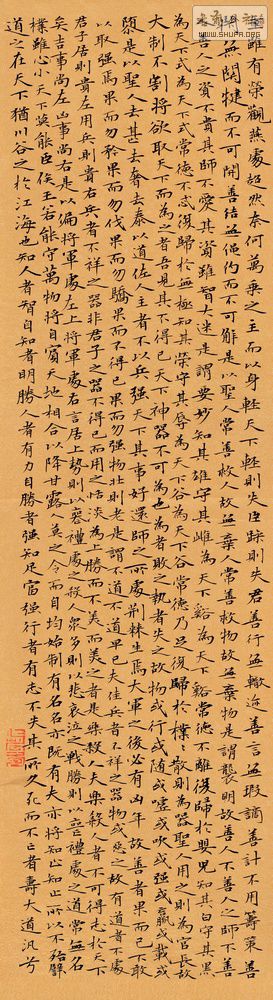 雖有榮觀燕處超然奈何萬乘之主而以身輕天下輕則失臣躁則失君善行無轍迹善言無瑕謫善計不用籌策善
閉無關楗而不可開善結無繩約而不可解是以聖人常善救人故無棄人常善救物故無棄物是謂襲明故善人不善人之師不善
人善人之資不貴其師不愛其資雖智大迷是謂要妙知其雄守其雌為天下谿為天下谿常德不離復歸於嬰兒知其白守其黑
為天下式為天下式常德不忒復歸於無極知其榮守其辱為天下谷為天下谷常德乃足復歸於樸樸散則為器聖人用之則為官長故
大制不割將欲取天下而為之吾見其不得已天下神器不可為也為者敗之執者失之故物或行或隨或噓或吹或强或羸或載或
隳是以聖人去甚去奢去泰以道佐人主者不以兵强天下其事好還師之所處荊棘生焉大軍之後必有凶年故善者果而已不敢
以取强焉果而勿矜果而勿伐果而勿驕果而不得已果而勿强物壯則老是謂不道不道早已夫佳兵者不祥之器物或惡之故有道者不處
君子居則貴左用兵則貴右兵者不祥之器非君子之器不得已而用之恬淡為上勝而不美而美之者是樂殺人夫樂殺人者不可得志於天下
矣吉事尚左凶事尚右是以偏將軍處左上將軍處右言居上勢則以喪禮處之殺人衆多則以悲哀泣之戰勝則以喪禮處之道常無名
樸雖小天下莫能臣侯王若能守萬物將自賓天地相合以降甘露莫之令而自均始制有名名亦既有夫亦將知止知止所以不殆譬
道之在天下猶川谷之於江海也知人者智自知者明勝人者有力自勝者强知足富强行者有志不失其所久死而不亡者壽大道汎兮
WWW.SHUFA.ORG